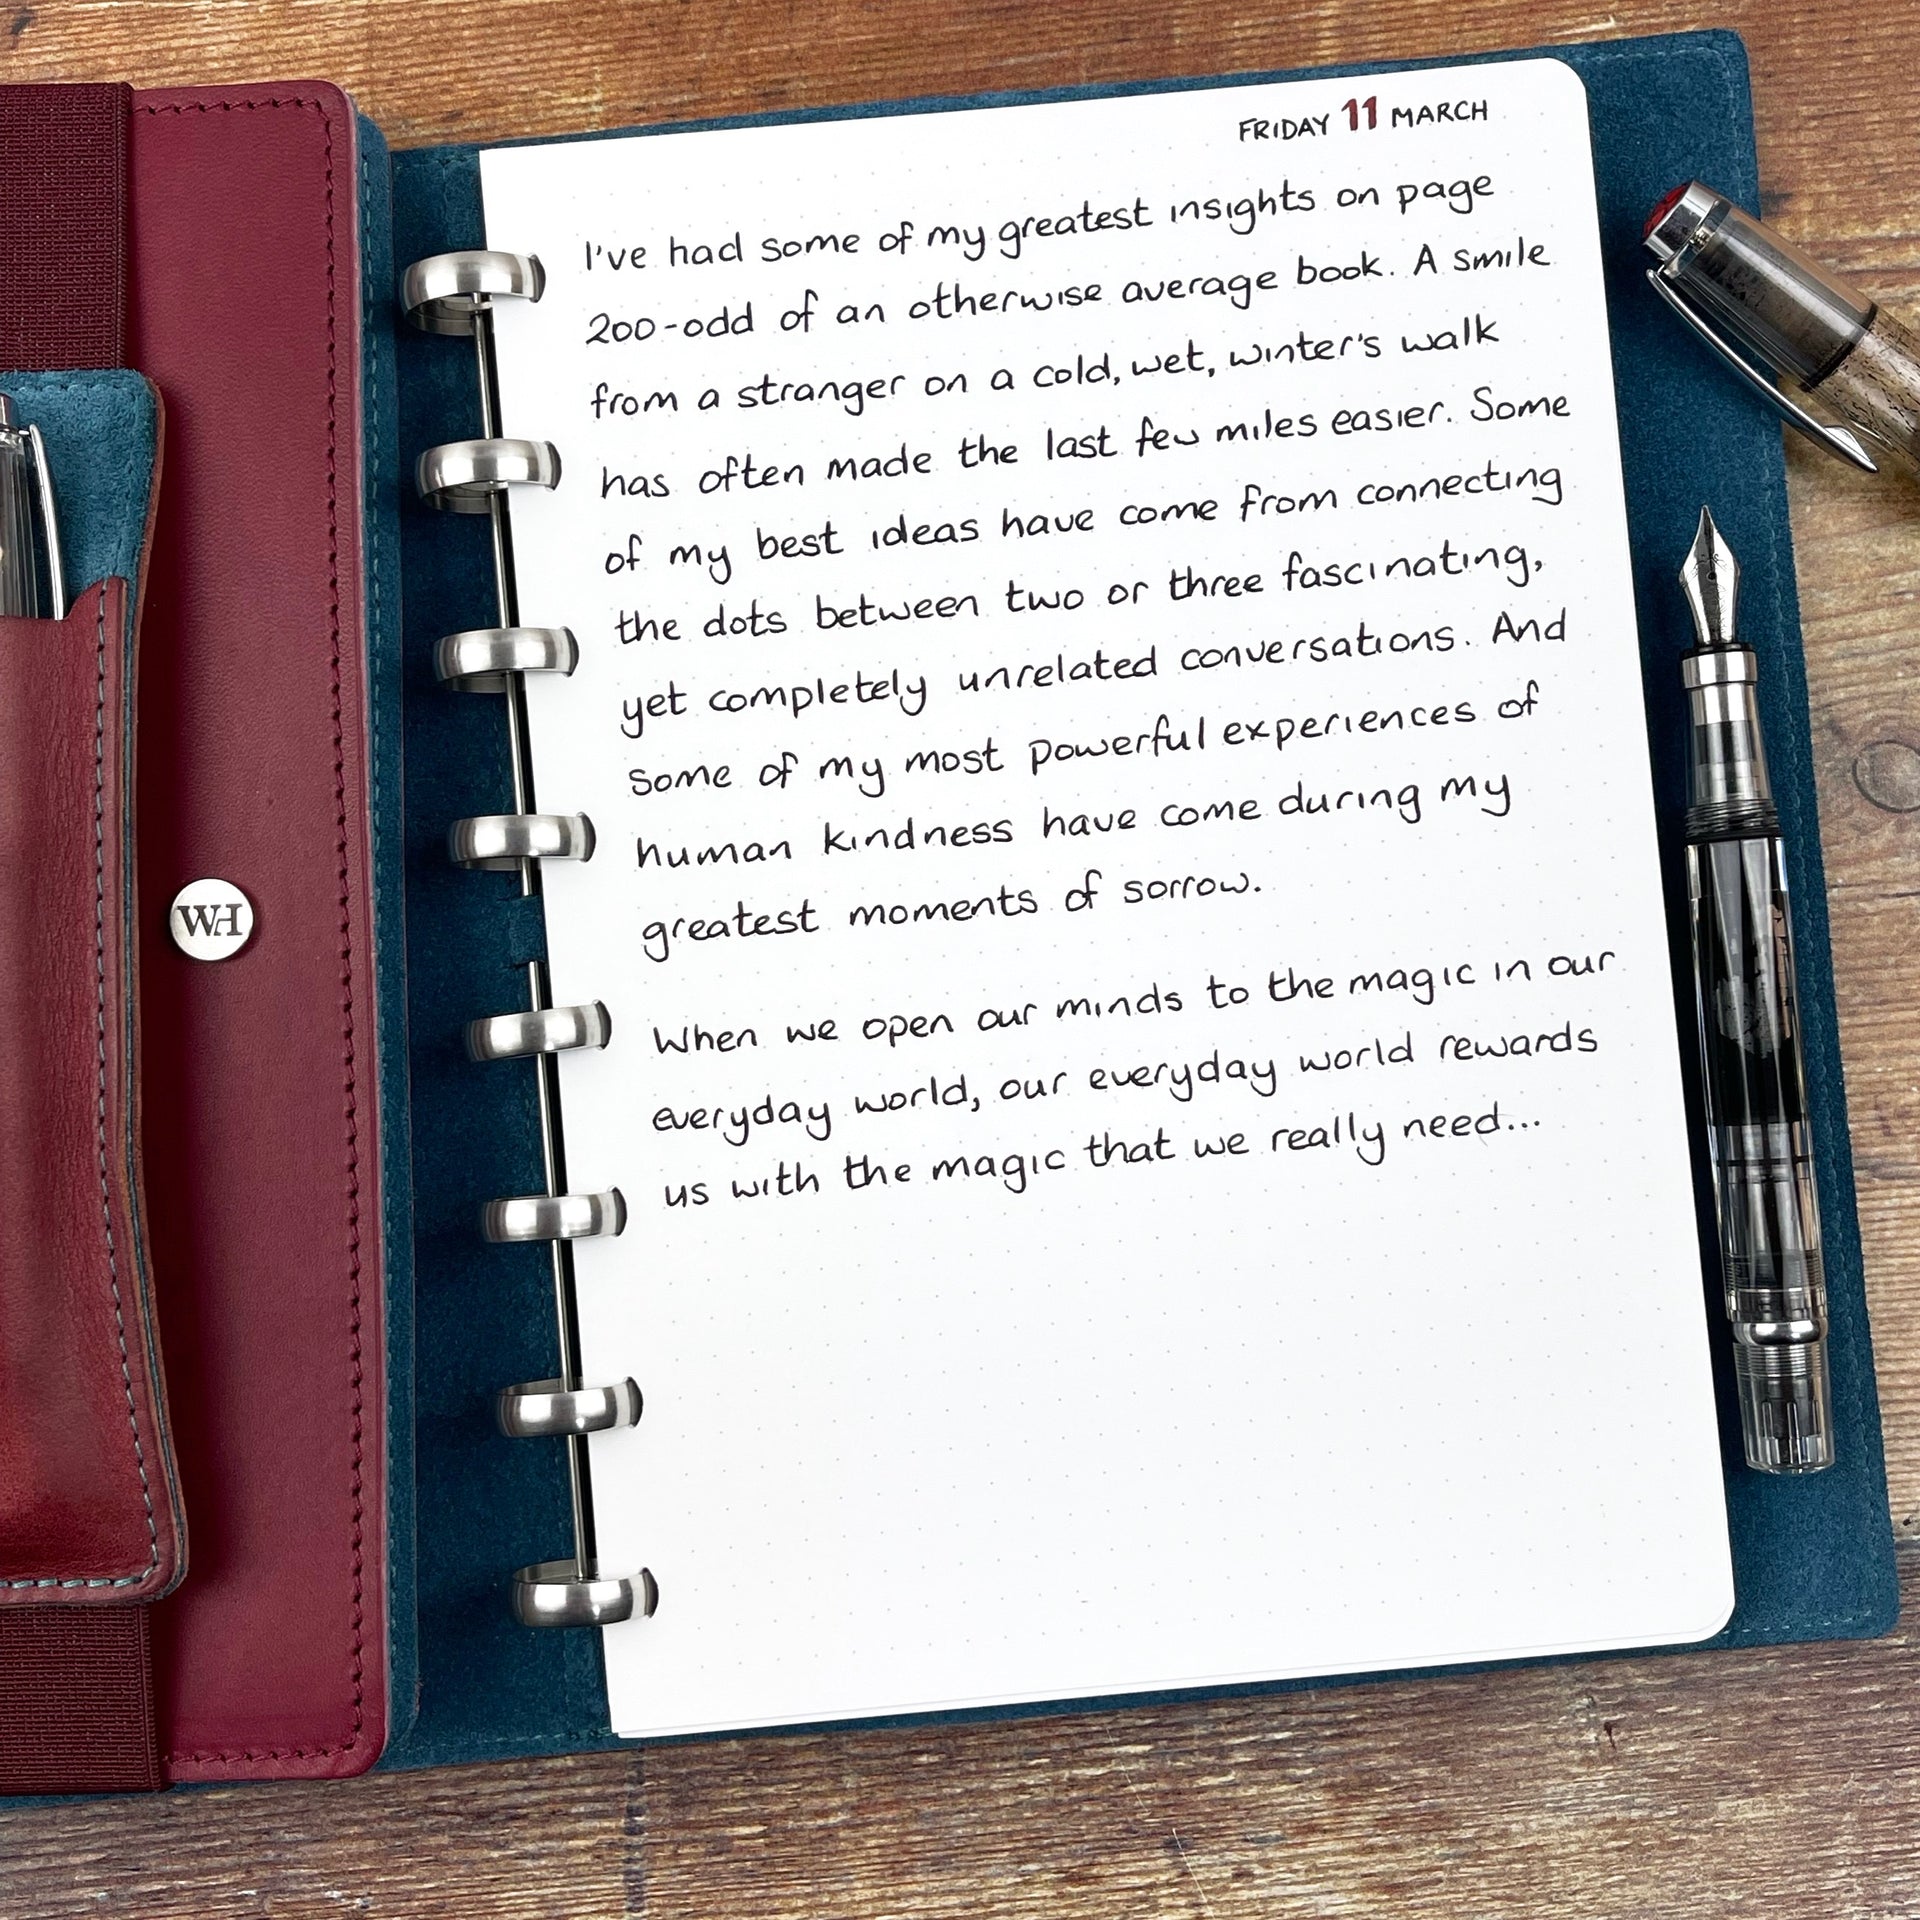 FRIDAY 11 MARCH
I've had some of my greatest insights on page
200-odd of an otherwise average book. A smile
from a stranger on a cold, wet, winter's walk
has often made the last few miles easier. Some
of my best ideas have come from connecting
the dots between two or three fascinating,
yet completely unrelated conversations. And
some of my most powerful experiences of
human kindness have come during my
greatest moments of sorrow.
When we open our minds to the magic in our
everyday world, our everyday world rewards
us with the magic that we really need...
WH